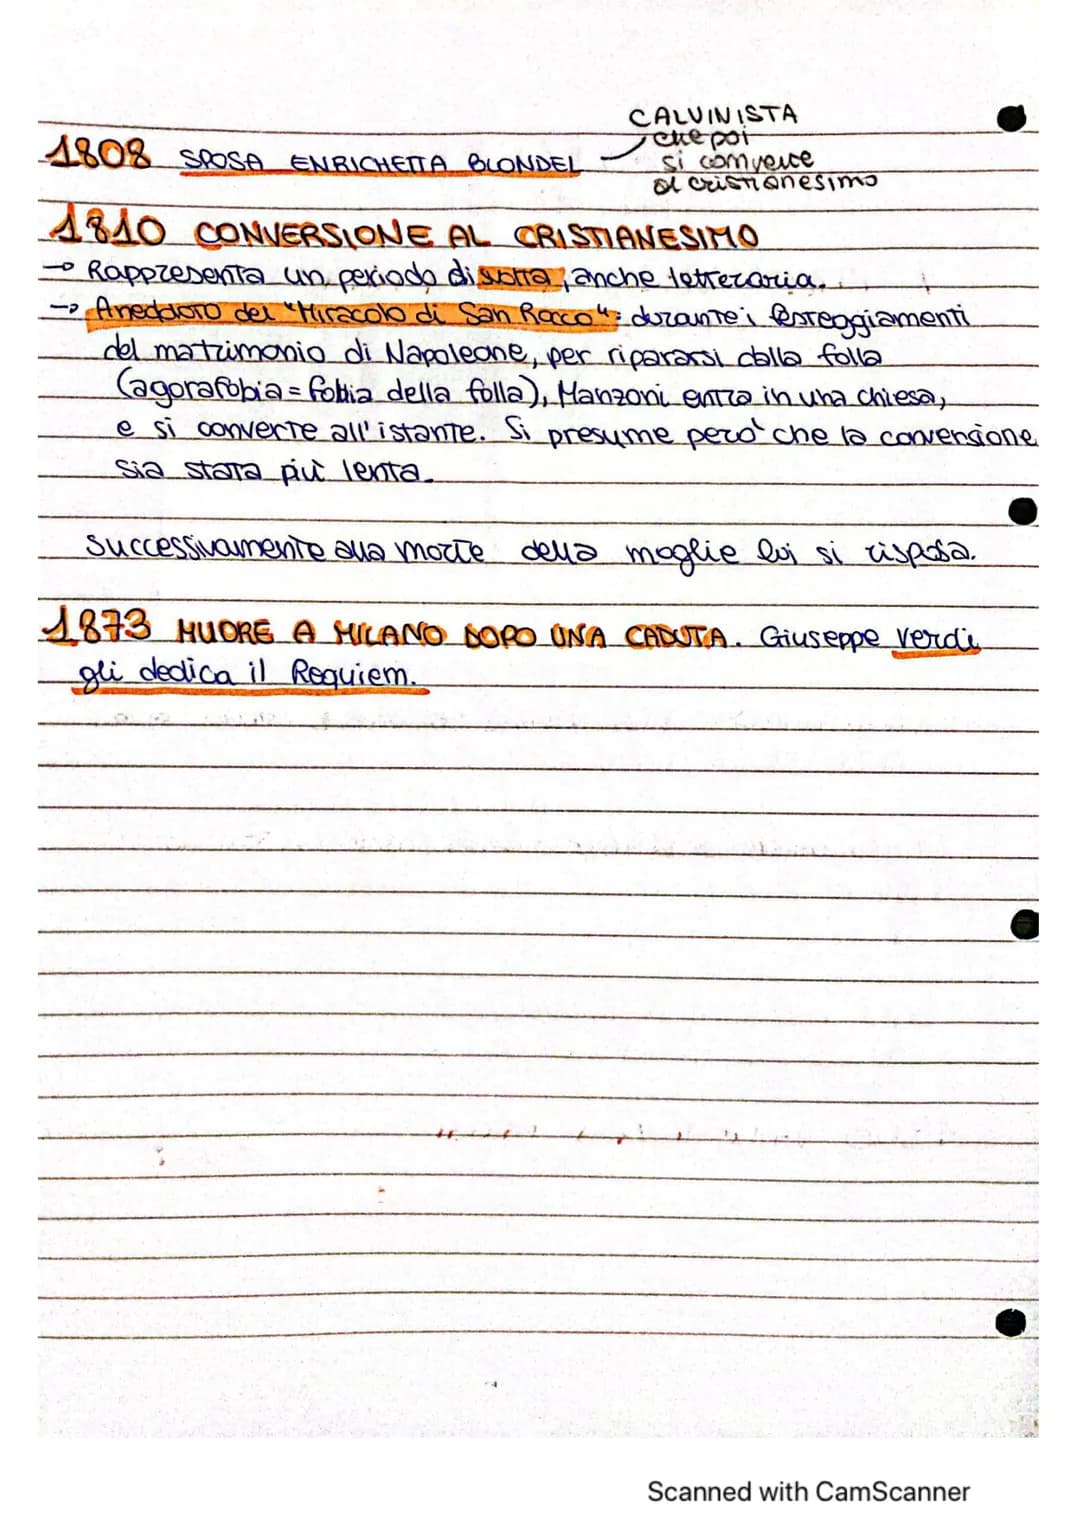 CALVINISTA
che poi
1808 SPOSA ENRICHETTA BLONDEL
si converte
al cristianesimo
1810 CONVERSIONE AL CRISTIANESIMO
→ Rappresenta un periodo di svolta, anche letteraria.
→ Aneddoto del "Miracolo di San Rocco": durante i festeggiamenti
del matrimonio di Napoleone, per ripararsi dalla folla
(agorafobia = fobia della folla), Manzoni entra in una chiesa,
e si converte all'istante. Si presume però che la conversione
sia stata più lenta.
Successivamente alla morte della moglie lui si risposa.
1873 MUORE A MILANO DOPO UNA CADUTA. Giuseppe Verdi
gli dedica il Requiem.
Scanned with CamScanner